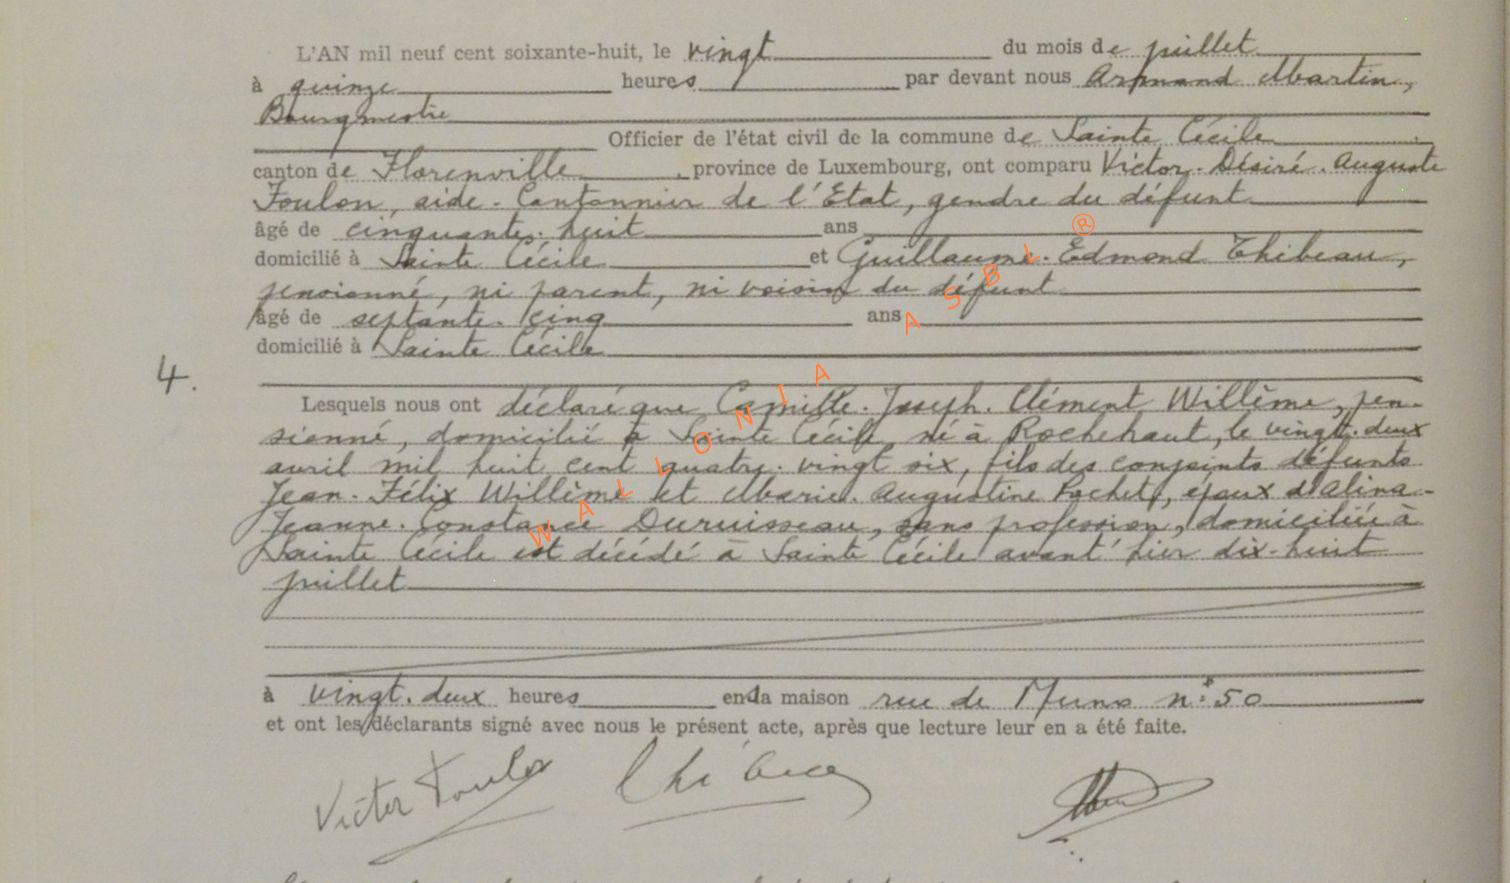 L'AN mil neuf cent soixante-huit, le vingt du mois de juillet
à quinze heures par devant nous Armand Martin,
Bourgmestre
Officier de l'état civil de la commune de Sainte Cécile
canton de Florenville, province de Luxembourg, ont comparu Victor-Désiré-Auguste
Toulon, aide-Cantonnier de l'Etat, gendre du défunt
âgé de cinquante-huit ans
domicilié à Sainte Cécile et Guillaume-Edmond Thibeau,
pensionné, ni parent, ni voisin du défunt
âgé de septante-cinq ans
domicilié à Sainte Cécile
4.
Lesquels nous ont déclaré que Camille-Joseph-Clément Willème, pen-
sionné, domicilié à Sainte Cécile, né à Rochehaut, le vingt-deux
avril mil huit cent quatre-vingt six, fils des conjoints défunts
Jean-Félix Willème et Marie-Augustine Pochet, époux d'Alina-
Jeanne-Constance Duruisseau, sans profession, domiciliée à
Sainte Cécile est décédé à Sainte Cécile avant hier dix-huit
juillet
à vingt-deux heures en la maison rue de Muno n° 50
et ont les déclarants signé avec nous le présent acte, après que lecture leur en a été faite.
Victor Toulon Thibeau
WALLONIA ASBL ®